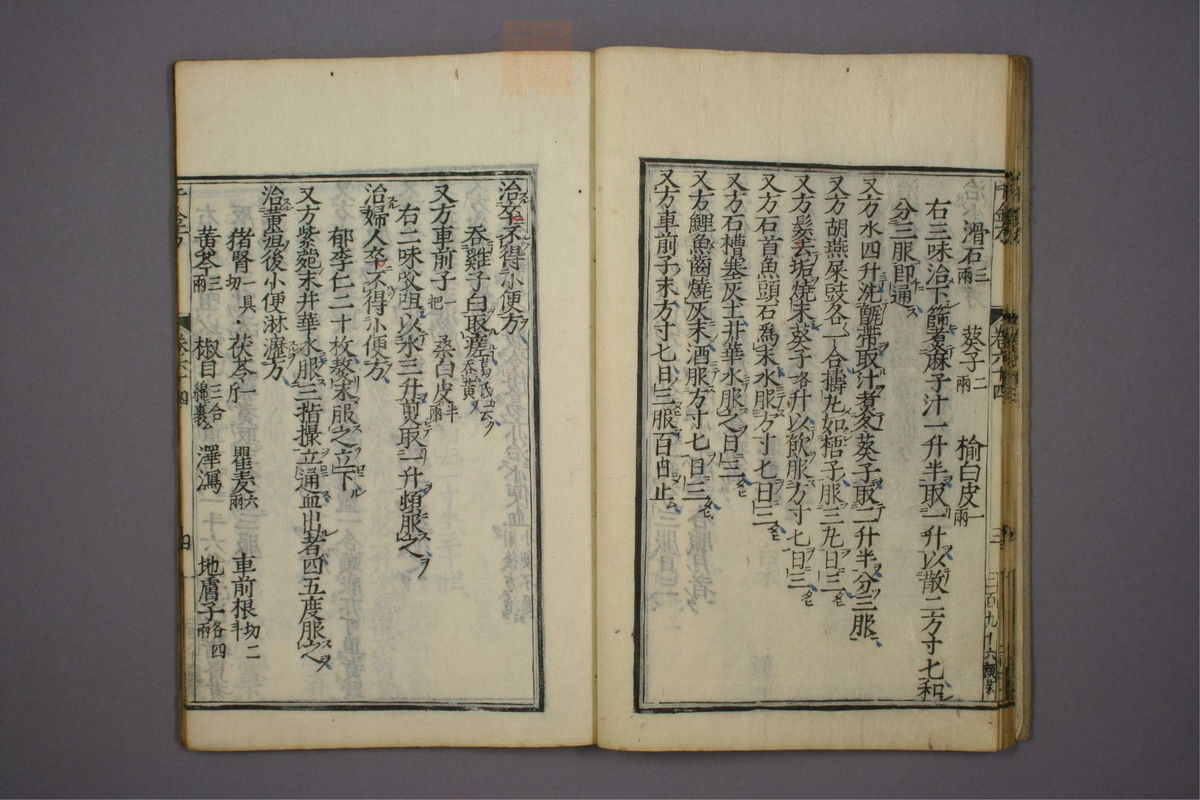 滑石三兩 葵子二兩 榆白皮一兩
右三味治下篩煮麻子汁一升半取一升以散二方寸匕和
分三服即通
又方水四升洗甑帶取汁煮葵子取二升半分三服
又方胡燕屎豉各一合擣丸如梧子服三丸日三
又方髮去垢燒末葵子各一升以飲服方寸匕日三
又方石首魚頭石為末水服方寸匕日三
又方石槽塞灰土井華水服之日三
又方鯉魚齒燒灰末酒服方寸匕日三
又方車前子末方寸匕日三服百日止
治卒不得小便方
吞雞子白取蹇
又方車前子一把 桑白皮半兩
右二味㕮咀以水三升煎取一升頓服之
治婦人卒不得小便方
郁李仁二十枚熬末服之立下
又方紫菀末井華水服三指撮立通血出者四五度服之
治黃疸後小便淋瀝方
猪腎一具切 茯苓一斤 瞿麦六兩 車前根切二斗
黃芩三兩 椒目三合綿裹 澤瀉 地膚子各四兩